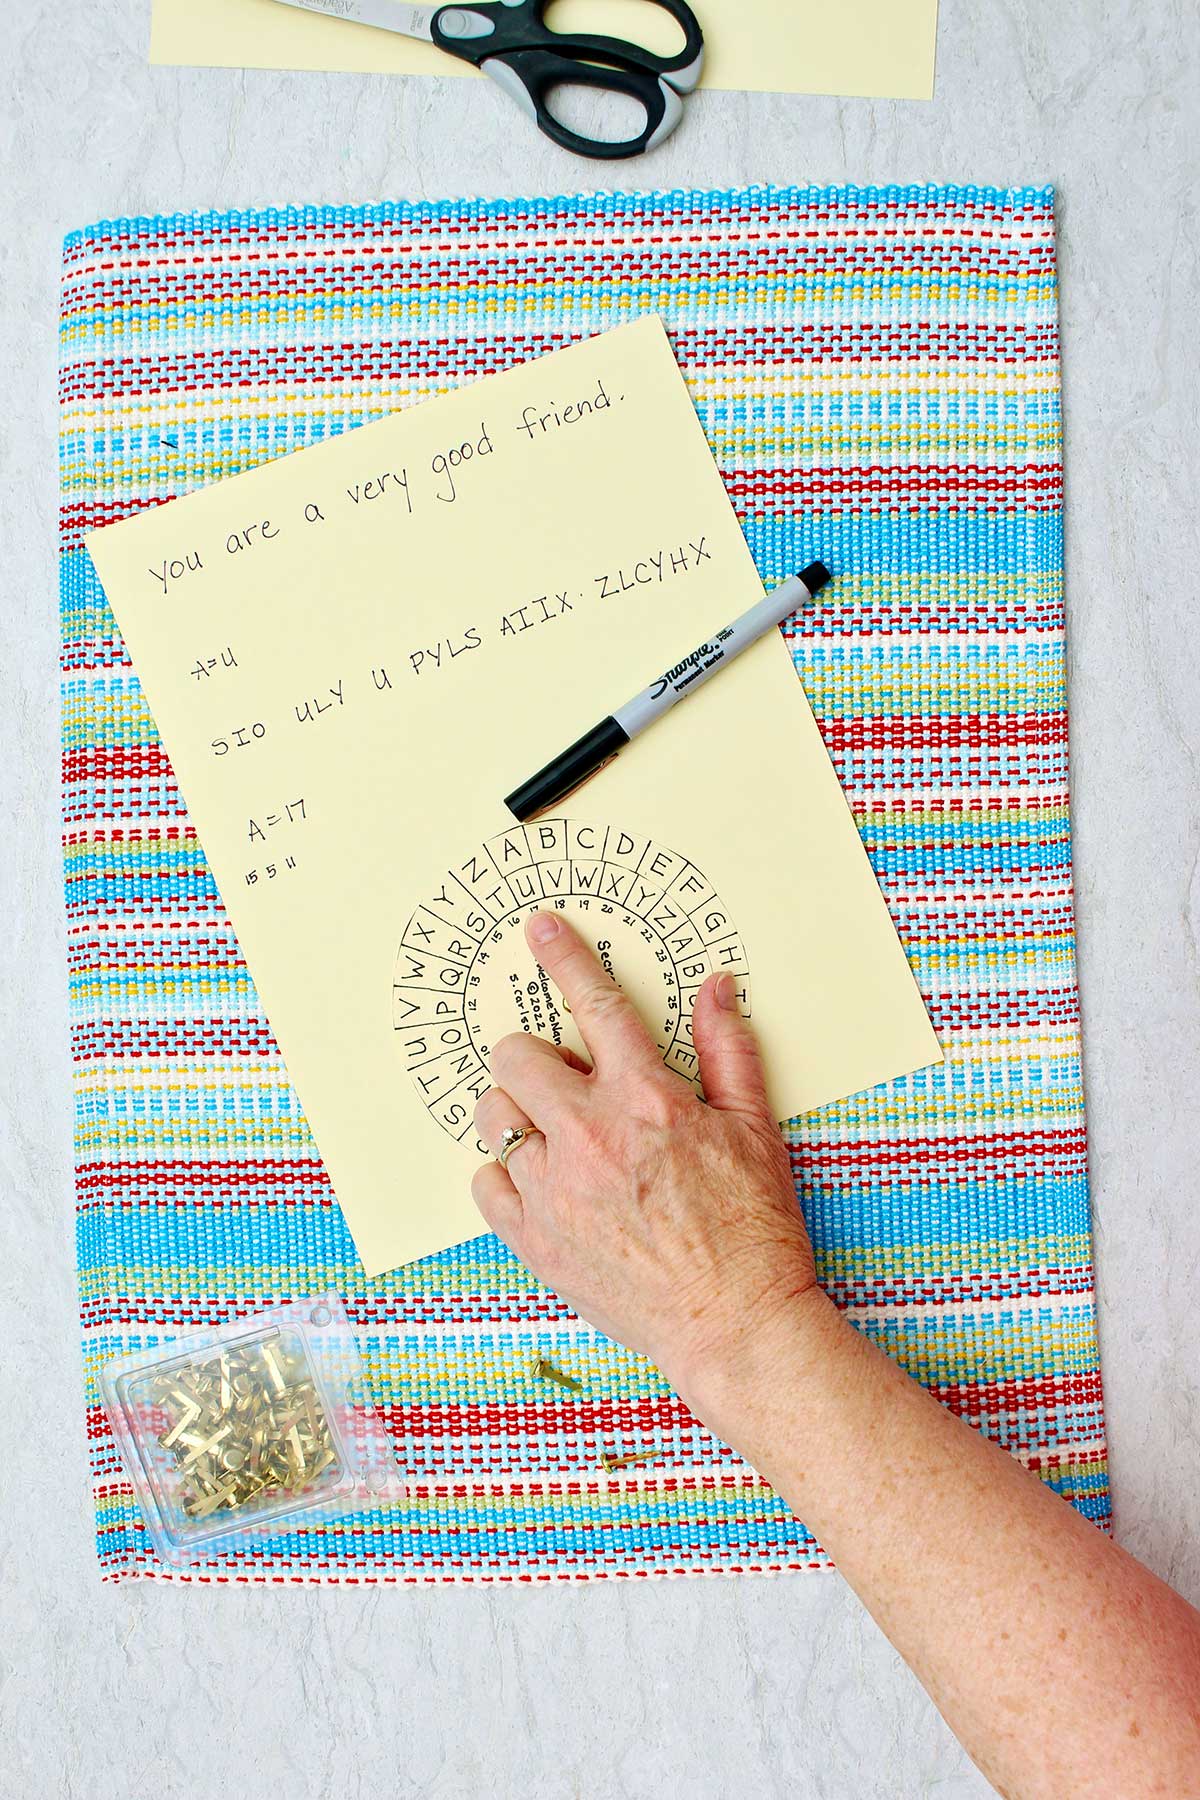 Academ
you are a very good friend.
A=U
SIO ULY U PYLS AIIX. ZLCYHX
Sharpie.
FINE POINT
Permanent Marker
A=17
15 5 11
S T U V W X Y Z A B C D E F G H I
M N O P Q R S T U V W X Y Z A B C D E
10 11 12 13 14 15 16 17 18 19 20 21 22 23 24 25 26 1
WelcomeToNan
© 2022
S. Carlso